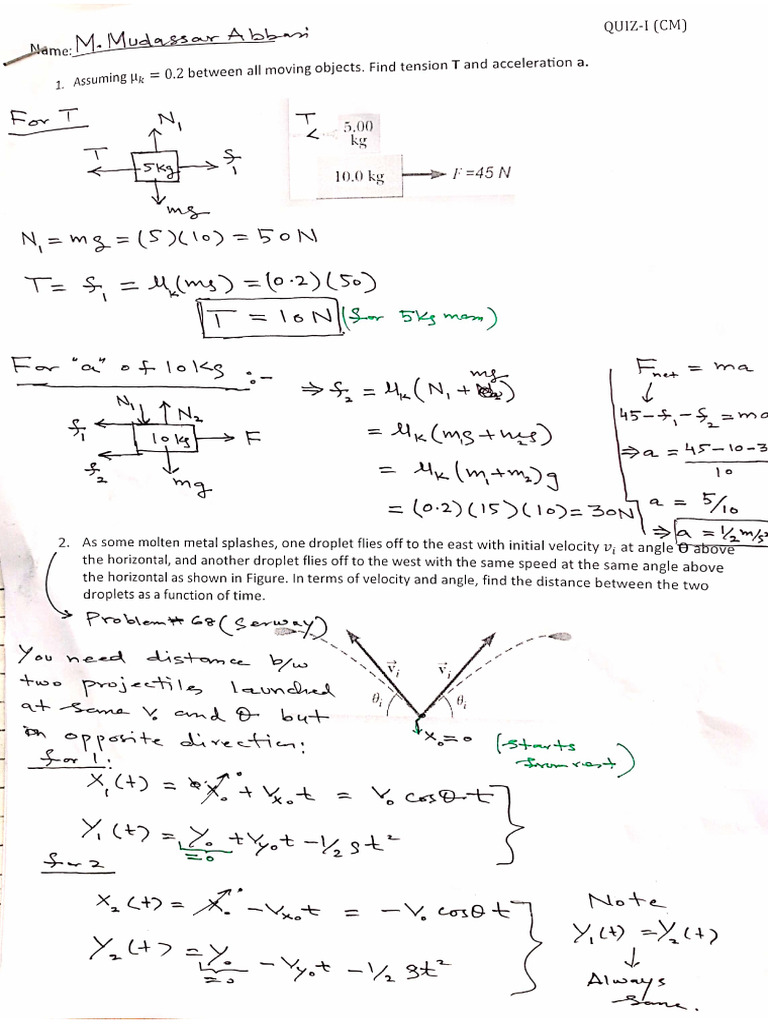 QUIZ-I (CM)
Name: M. Mudassar Abbasi
1. Assuming μk = 0.2 between all moving objects. Find tension T and acceleration a.
For T
N₁
T
5kg
f₁
mg
T
5.00
kg
10.0 kg
F =45 N
N₁ = mg = (5)(10) = 50N
T = f₁ = μk(mg) = (0.2)(50)
T = 10N (for 5kg mass)
For "a" of 10kg :-
N₁
N₂
f₁
10kg
F
f₂
mg
mg
⇒ f₂ = μk(N₁ + )
= μk(m₁g + m₂g)
= μk(m₁+m₂)g
= (0.2)(15)(10) = 30N
Fnet = ma
45 - f₁ - f₂ = ma
⇒ a = 45-10-3
10
a = 5/10
⇒ a = 1/2 m/s²
2. As some molten metal splashes, one droplet flies off to the east with initial velocity vi at angle θ above
the horizontal, and another droplet flies off to the west with the same speed at the same angle above
the horizontal as shown in Figure. In terms of velocity and angle, find the distance between the two
droplets as a function of time.
Problem# 68 (Serway)
You need distance b/w
two projectiles launched
at same V₀ and θ but
in opposite direction:
v⃗i
v⃗i
θi
θi
X₀=0
(starts
from rest)
for 1:
X₁(t) = X₀ + Vx₀t = V₀ cosθ t
Y₁(t) = Y₀ + Vy₀t - 1/2 gt²
=0
for 2
X₂(t) = X₀ - Vx₀t = -V₀ cosθ t
Y₂(t) = Y₀ - Vy₀t - 1/2 gt²
=0
Note
Y₁(t) = Y₂(t)
Always
same.